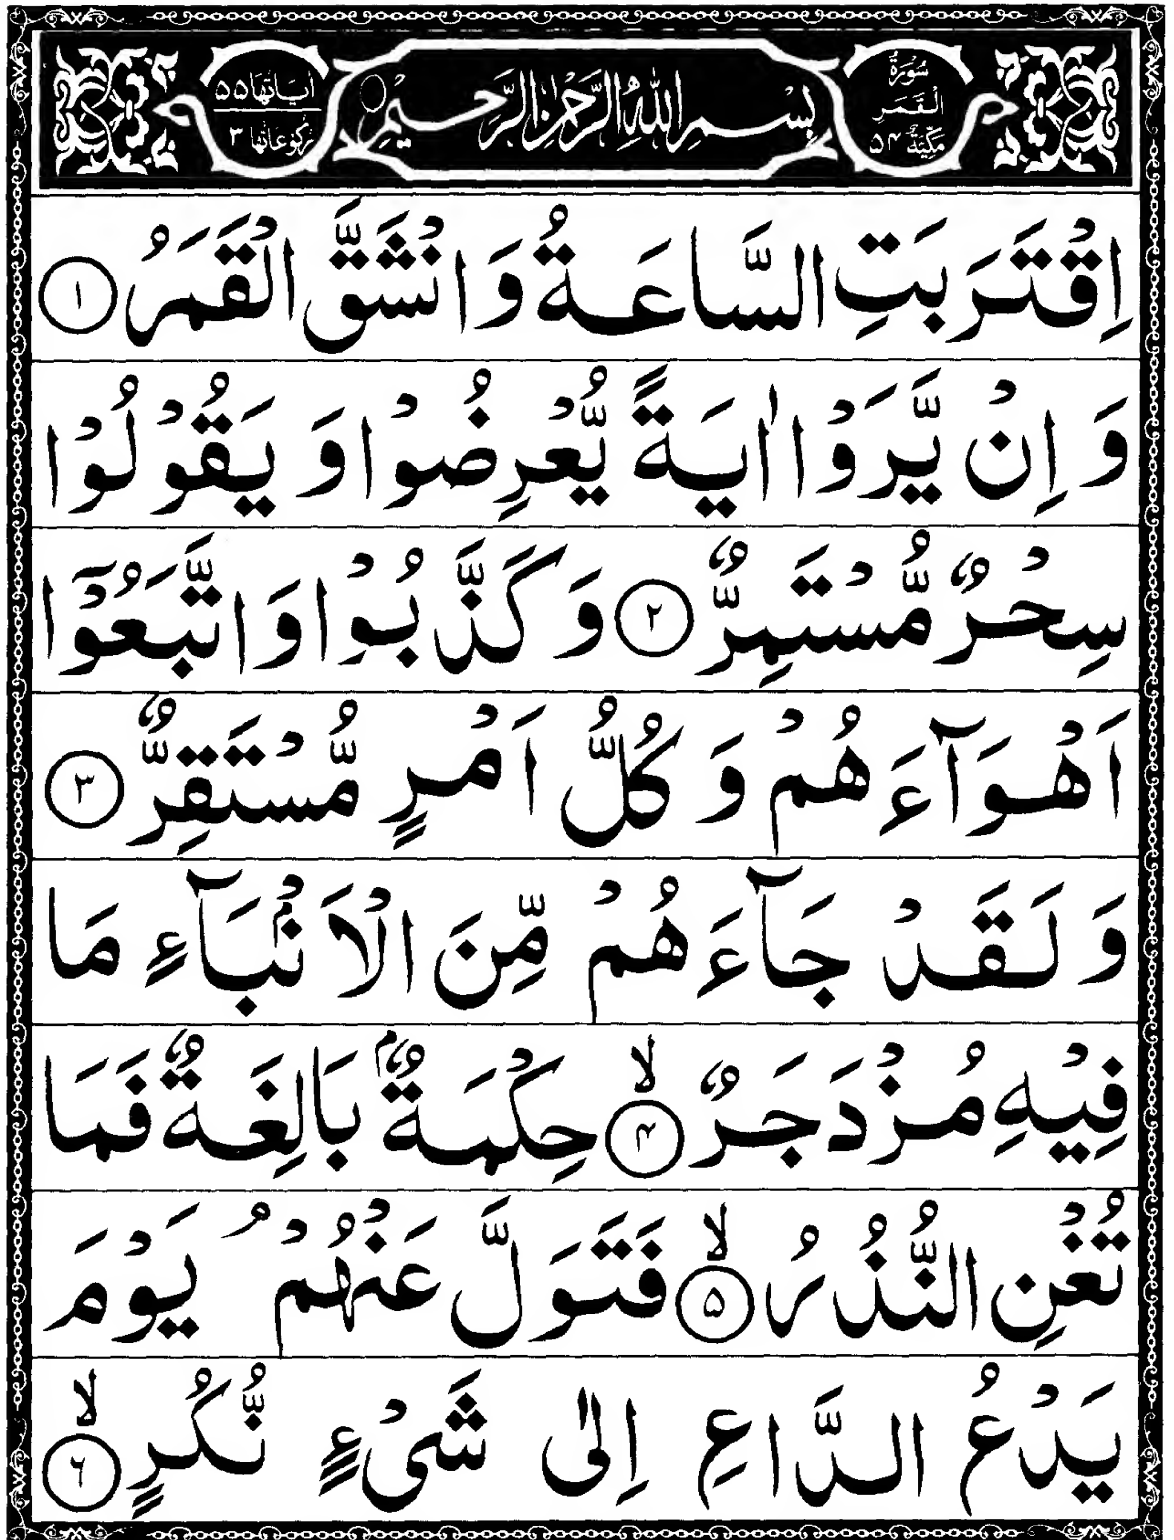 سُوْرَةُ الْقَمَرِ مَكِّيَّةٌ ٥٤
بِسْمِ اللّٰهِ الرَّحْمٰنِ الرَّحِيْمِ
اٰيَاتُهَا ٥٥
رُكُوْعَاتُهَا ٣
اِقْتَرَبَتِ السَّاعَةُ وَ انْشَقَّ الْقَمَرُ ۝١
وَ اِنْ يَّرَوْا اٰيَةً يُّعْرِضُوْا وَ يَقُوْلُوْا
سِحْرٌ مُّسْتَمِرٌّ ۝٢ وَ كَذَّبُوْا وَ اتَّبَعُوْٓا
اَهْوَآءَهُمْ وَ كُلُّ اَمْرٍ مُّسْتَقِرٌّ ۝٣
وَ لَقَدْ جَآءَهُمْ مِّنَ الْاَنْۢبَآءِ مَا
فِيْهِ مُزْدَجَرٌ ۝٤ۙ حِكْمَةٌۢ بَالِغَةٌ فَمَا
تُغْنِ النُّذُرُ ۝٥ۙ فَتَوَلَّ عَنْهُمْ ۘ يَوْمَ
يَدْعُ الدَّاعِ اِلٰى شَیْءٍ نُّكُرٍ ۝٦ۙ